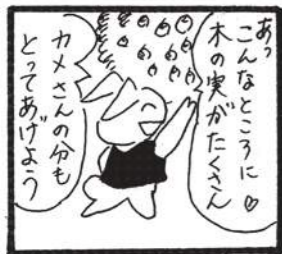 あっ
こんなところに♡
木の実がたくさん
カメさんの分も
とってあげよう